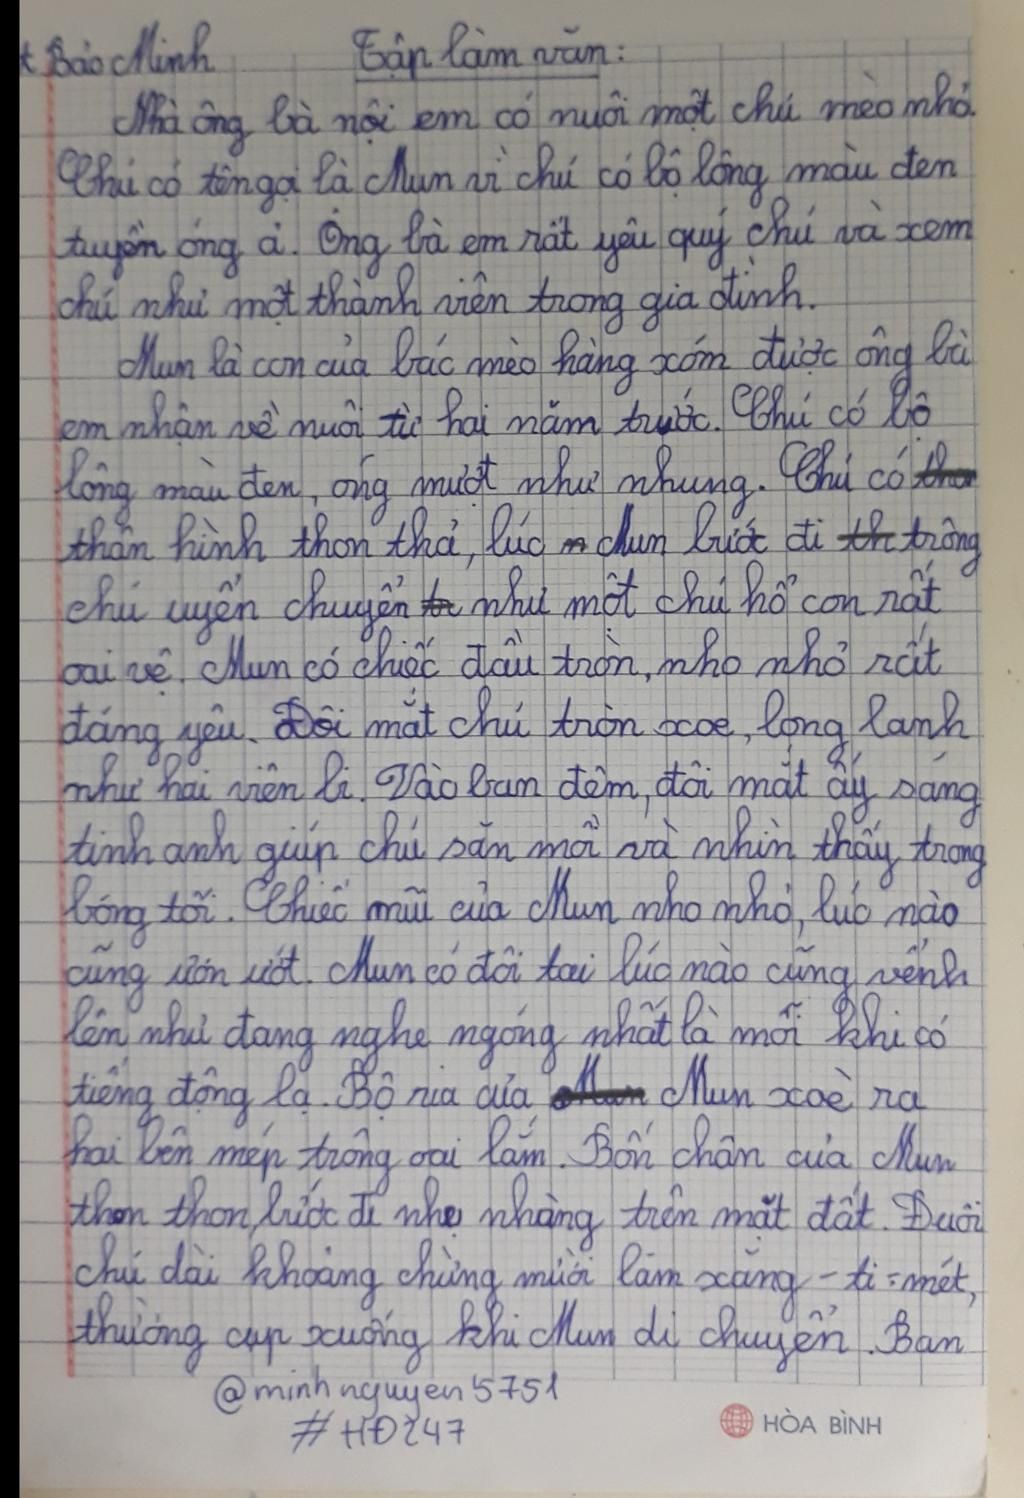 t Bảo Minh Tập làm văn:
Nhà ông bà nội em có nuôi một chú mèo nhỏ.
Chú có tên gọi là Mun vì chú có bộ lông màu đen
tuyền óng ả. Ông bà em rất yêu quý chú và xem
chú như một thành viên trong gia đình.
Mun là con của bác mèo hàng xóm được ông bà
em nhận về nuôi từ hai năm trước. Chú có bộ
lông màu đen, óng mượt như nhung. Chú có
thân hình thon thả, lúc Mun bước đi trông
chú uyển chuyển như một chú hổ con rất
oai vệ. Mun có chiếc đầu tròn, nho nhỏ rất
đáng yêu. Đôi mắt chú tròn xoe, long lanh
như hai viên bi. Vào ban đêm, đôi mắt ấy sáng
tinh anh giúp chú săn mồi và nhìn thấy trong
bóng tối. Chiếc mũi của Mun nho nhỏ, lúc nào
cũng ươn ướt. Mun có đôi tai lúc nào cũng vểnh
lên như đang nghe ngóng nhất là mỗi khi có
tiếng động lạ. Bộ ria của Mun xoè ra
hai bên mép trông oai lắm. Bốn chân của Mun
thon thon, bước đi nhẹ nhàng trên mặt đất. Đuôi
chú dài khoảng chừng mười lăm xăng-ti-mét,
thường cụp xuống khi Mun di chuyển. Ban
@minhnguyen5751
#HĐ247
HÒA BÌNH